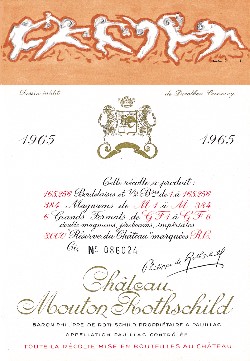 Dessin inédit de Dorothea Tanning
1965 1965
Cette récolte a produit :
Bordelaises et 1/2 Bses de 1 à
Magnums de M 1 à M
6 Grands Formats de G F 1 à G F 6
doubles magnums, jéroboams, impériales
3000 "Réserve du Château" marquées R.C.
Ci, No 086024
Philippe de Rothschild
Château
Mouton Rothschild
BARON PHILIPPE DE ROTHSCHILD PROPRIÉTAIRE A PAUILLAC
APPELLATION PAUILLAC CONTROLÉE
TOUTE LA RÉCOLTE MISE EN BOUTEILLES AU CHÂTEAU